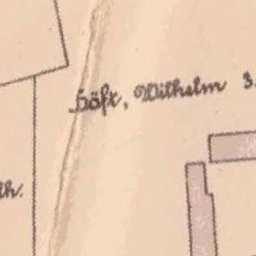 Höft, Wilhelm 3.
th.